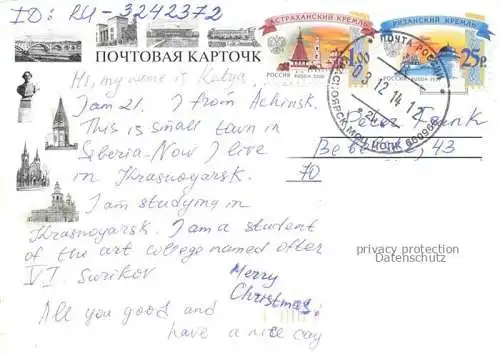 ID: RU-3242372
АСТРАХАНСКИЙ КРЕМЛЬ
РЯЗАНСКИЙ КРЕМЛЬ
25р.
РОССИЯ
РОССИЯ
ПОЧТА РОССИИ
03 12 14 12
ПОЧТОВАЯ КАРТОЧК
my name is Katya
I am 21. I from Achinsk.
This is small town in
Siberia. Now I live
in Krasnoyarsk.
I am studying in
Krasnoyarsk. I am a student
of the art college named after
V I. Surikov
Merry
Christmas!
All you good and
have a nice day
Peter
43
70
privacy protection
Datenschutz